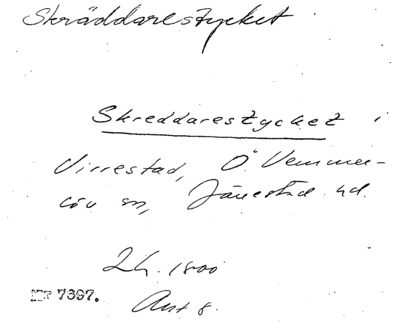 Skräddarestycket
Skreddarestycket i
Virrestad, Ö Vemmer-
löv sn, Järrestad hd.
LL. 1800
MTT 7397.
Akt 8.